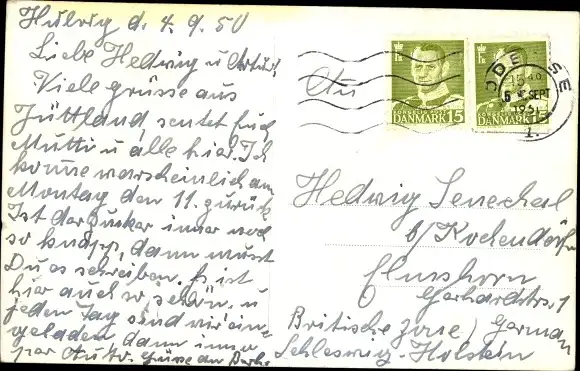 Hulvig d. 4. 9. 50
Liebe Hedwig u Artur!
Viele grüsse aus
Jüttland, sentet Euch
Mutti u alle hier. Ich
komme warscheinlich am
Montag den 11. zurück
Ist der Zucker immer noch
so knapp, dann musst
Du es schreiben. Es ist
hier auch so schön. u
jeden Tag sind wir ein=
geladen, dann immer
per Auto. Grüsse an
An
Hedwig Senechal
b/Kochendörfer
Elmshorn
Gerhardstr. 1
Britische Zone/German
Schleswig-Holstein
DANMARK 15
DANMARK 15
ODENSE
5 SEPT